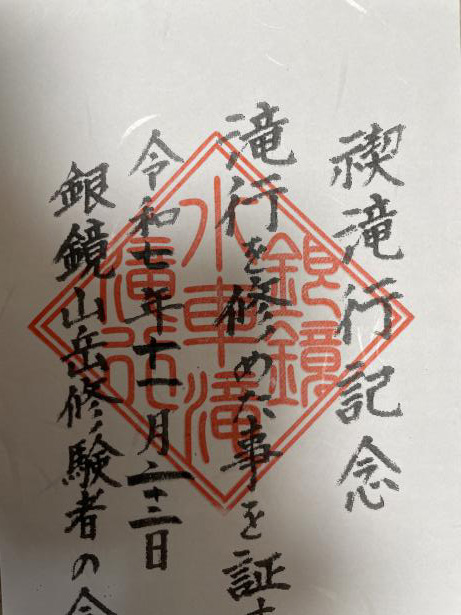 禊滝行記念
滝行を修めた事を証
令和七年十一月二十三日
銀鏡山岳修験者の会
銀鏡
車滝